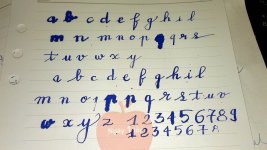 a b c d e f g h i l
m n m n o p q r s
t u v w x y
a b c d e f g h i l
m n o p p q r s t u v
w x y z 1 2 3 4 5 6 7 8 9
1 2 3 4 5 6 7 8